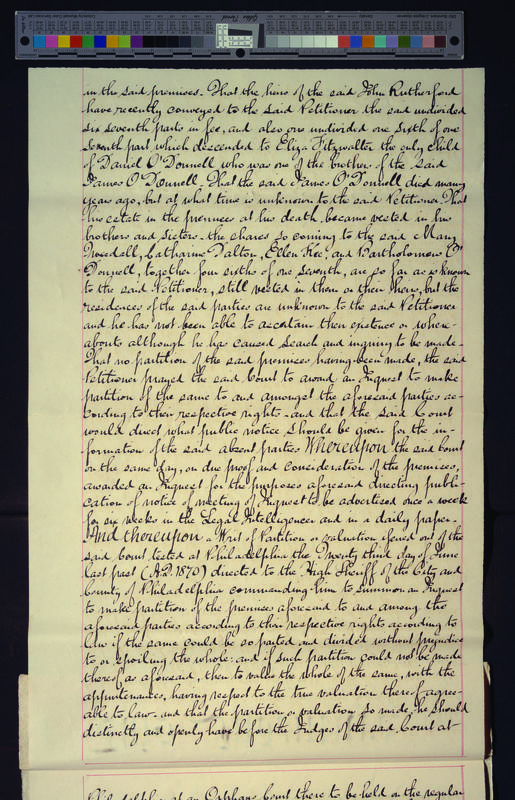 in the said premises. That the heirs of the said John Rutherford
have recently conveyed to the said Petitioner the said undivided
six seventh parts in fee, and also one undivided one sixth of one
seventh part which descended to Eliza Fitzwalter the only child
of Daniel O'Donnell who was one of the brothers of the said
James O'Donnell. That the said James O'Donnell died many
years ago, but at what time is unknown to the said Petitioner. That
his estate in the premises at his death became vested in his
brothers and sisters - the shares so coming to the said Mary
Catharine Dalton, Ellen Kee, and Bartholomew O'
Donnell, together four sixths of one seventh, are so far as is known
to the said Petitioner, still vested in them or their heirs, but the
residences of the said parties are unknown to the said Petitioner
and he has not been able to ascertain their existence or where-
abouts although he has caused search and inquiry to be made.
That no partition of the said premises having been made, the said
Petitioner prayed the said Court to award an Inquest to make
partition of the same to and amongst the aforesaid parties ac-
cording to their respective rights - and that the said Court
would direct what public notice should be given for the in-
formation of the said absent parties Whereupon the said Court
on the same day, on due proof and consideration of the premises,
awarded an Inquest for the purposes aforesaid directing publi-
cation of notice of meeting of Inquest to be advertised once a week
for six weeks in the Legal Intelligencer and in a daily paper.
And thereupon a Writ of Partition or valuation issued out of the
said Court tested at Philadelphia the Twenty third day of June
last past (A.D. 1870) directed to the High Sheriff of the City and
County of Philadelphia commanding him to summon an Inquest
to make partition of the premises aforesaid to and among the
aforesaid parties according to their respective rights according to
law if the same could be so parted and divided without prejudice
to or spoiling the whole: and if such partition could not be made
thereof as aforesaid, then to value the whole of the same, with the
appurtenances, having respect to the true valuation thereof agree-
able to law - and that the partition or valuation so made, he should
distinctly and openly have before the Judges of the said Court at
Philadelphia at an Orphans Court there to be held on the regular